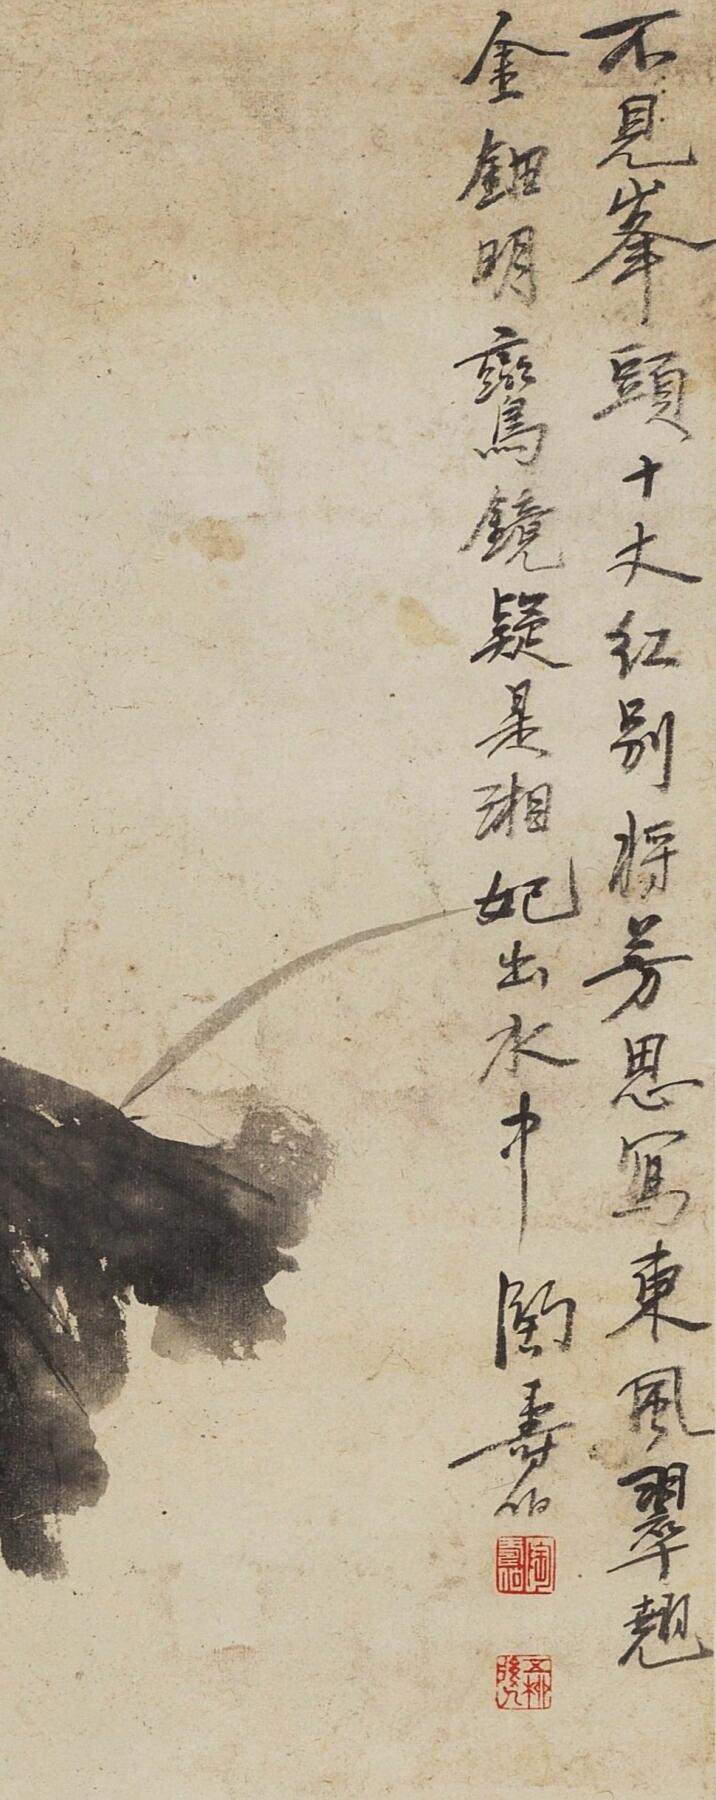 不見峯頭十丈紅別將芳思寫東風翠翹
金鈿明鸞鏡疑是湘妃出水中 陶壽伯
陶壽伯